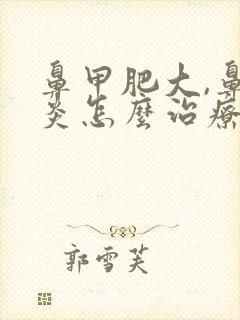 鼻甲肥大,鼻
炎怎麼治療
郭雪芙